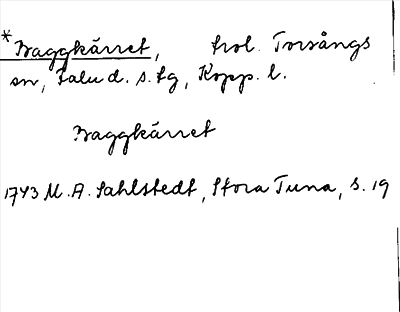 *Baggkärret, trol. Torsångs
sn, Falu d. s. tg, Kopp. l.
Baggkärret
1743 M. A. Sahlstedt, Stora Tuna, s. 19